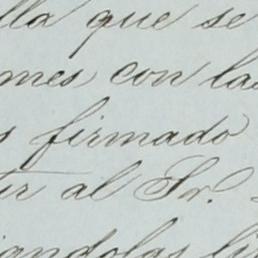 lla que se
mes con las
s firmado
ir al Sr.
andolas